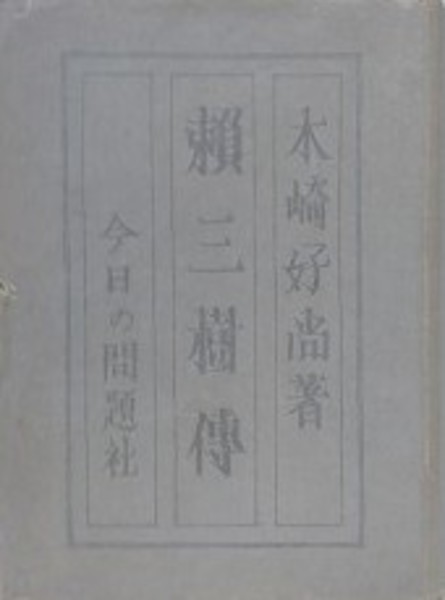 木崎好尚著
頼三樹傳
今日の問題社